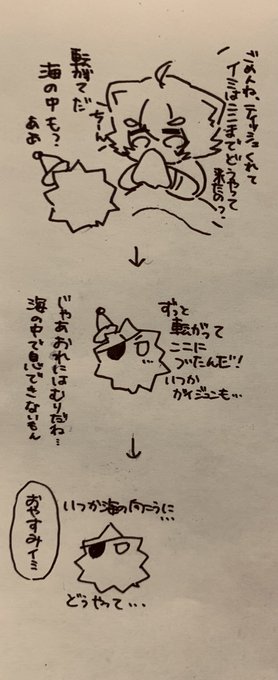 ごめんね、ティッシュくれて
イミはここまでどうやって
来たのっ?
ちーん
転がてだ
海の中もっ?
ああ
ずっと
転がって
ここに
づいたんだ!
いつか
ガイジュンも…
じゃあおれにはむりだね…
海の中で息できないもん
いつか海の向こうに…
どうやって…
おやすみイミ